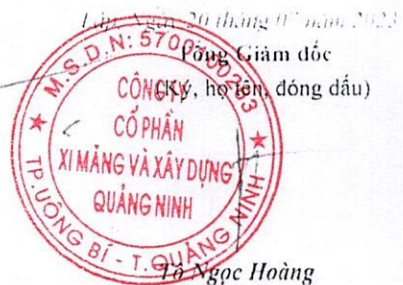 Lập, Ngày 20 tháng 07 năm 2023
Tổng Giám đốc
(Ký, họ tên, đóng dấu)
M.S.D.N: 5700
CÔNG TY
CỔ PHẦN
XI MĂNG VÀ XÂY DỰNG
QUẢNG NINH
TP.UÔNG BÍ - T.QUẢNG NINH
Tô Ngọc Hoàng